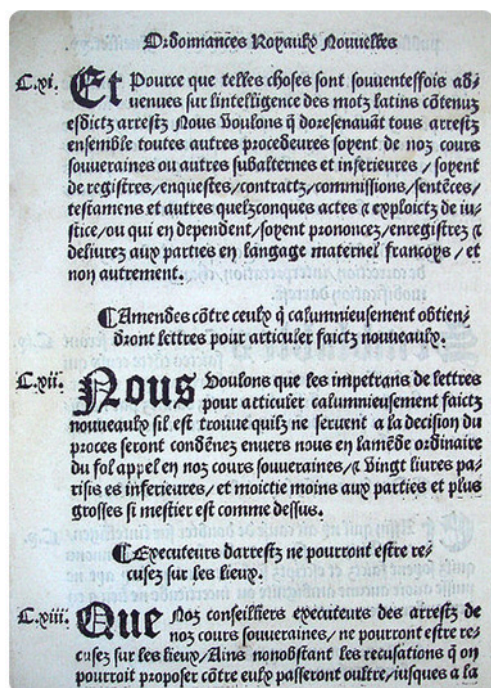 Ordonnances Royaulx Nouuelles
C.xi. Et Pource que telles choses sont souuenteffois ad⸗
uenues sur lintelligence des motz latins cõtenuz
esdictz arrestz Nous Voulons q̃ doresenauãt tous arrestz
ensemble toutes autres procedeures soyent de noz cours
souueraines ou autres subalternes et inferieures / soyent
de registres/enquestes/contractz/commissions/sentẽces/
testamens et autres quelzconques actes ⁊ exploictz de iu⸗
stice/ou qui en dependent/soyent prononcez/enregistrez ⁊
deliurez aux parties en langage maternel francoys / et
non autrement.
⸿ Amendes cõtre ceulx q̃ calumnieusement obtien⸗
dront lettres pour articuler faictz nouueaulx.
C.xii. Nous Voulons que les impetrans de lettres
pour articuler calumnieusement faictz
nouueaulx sil est trouue quilz ne seruent a la decision du
proces seront condẽnez enuers nous en lamẽde ordinaire
du fol appel en noz cours souueraines/⁊ Vingt liures pa⸗
risis es inferieures/ et moictie moins aux parties et plus
grosses si mestier est comme dessus.
⸿ Executeurs darrestz ne pourront estre re⸗
cusez sur les lieux.
C.xiii. Que Noz conseilliers executeurs des arrestz de
noz cours souueraines/ ne pourront estre re⸗
cusez sur les lieux/Ains nonobstant les recusations q̃ on
pourroit proposer cõtre eulx passeront oultre/iusques a la